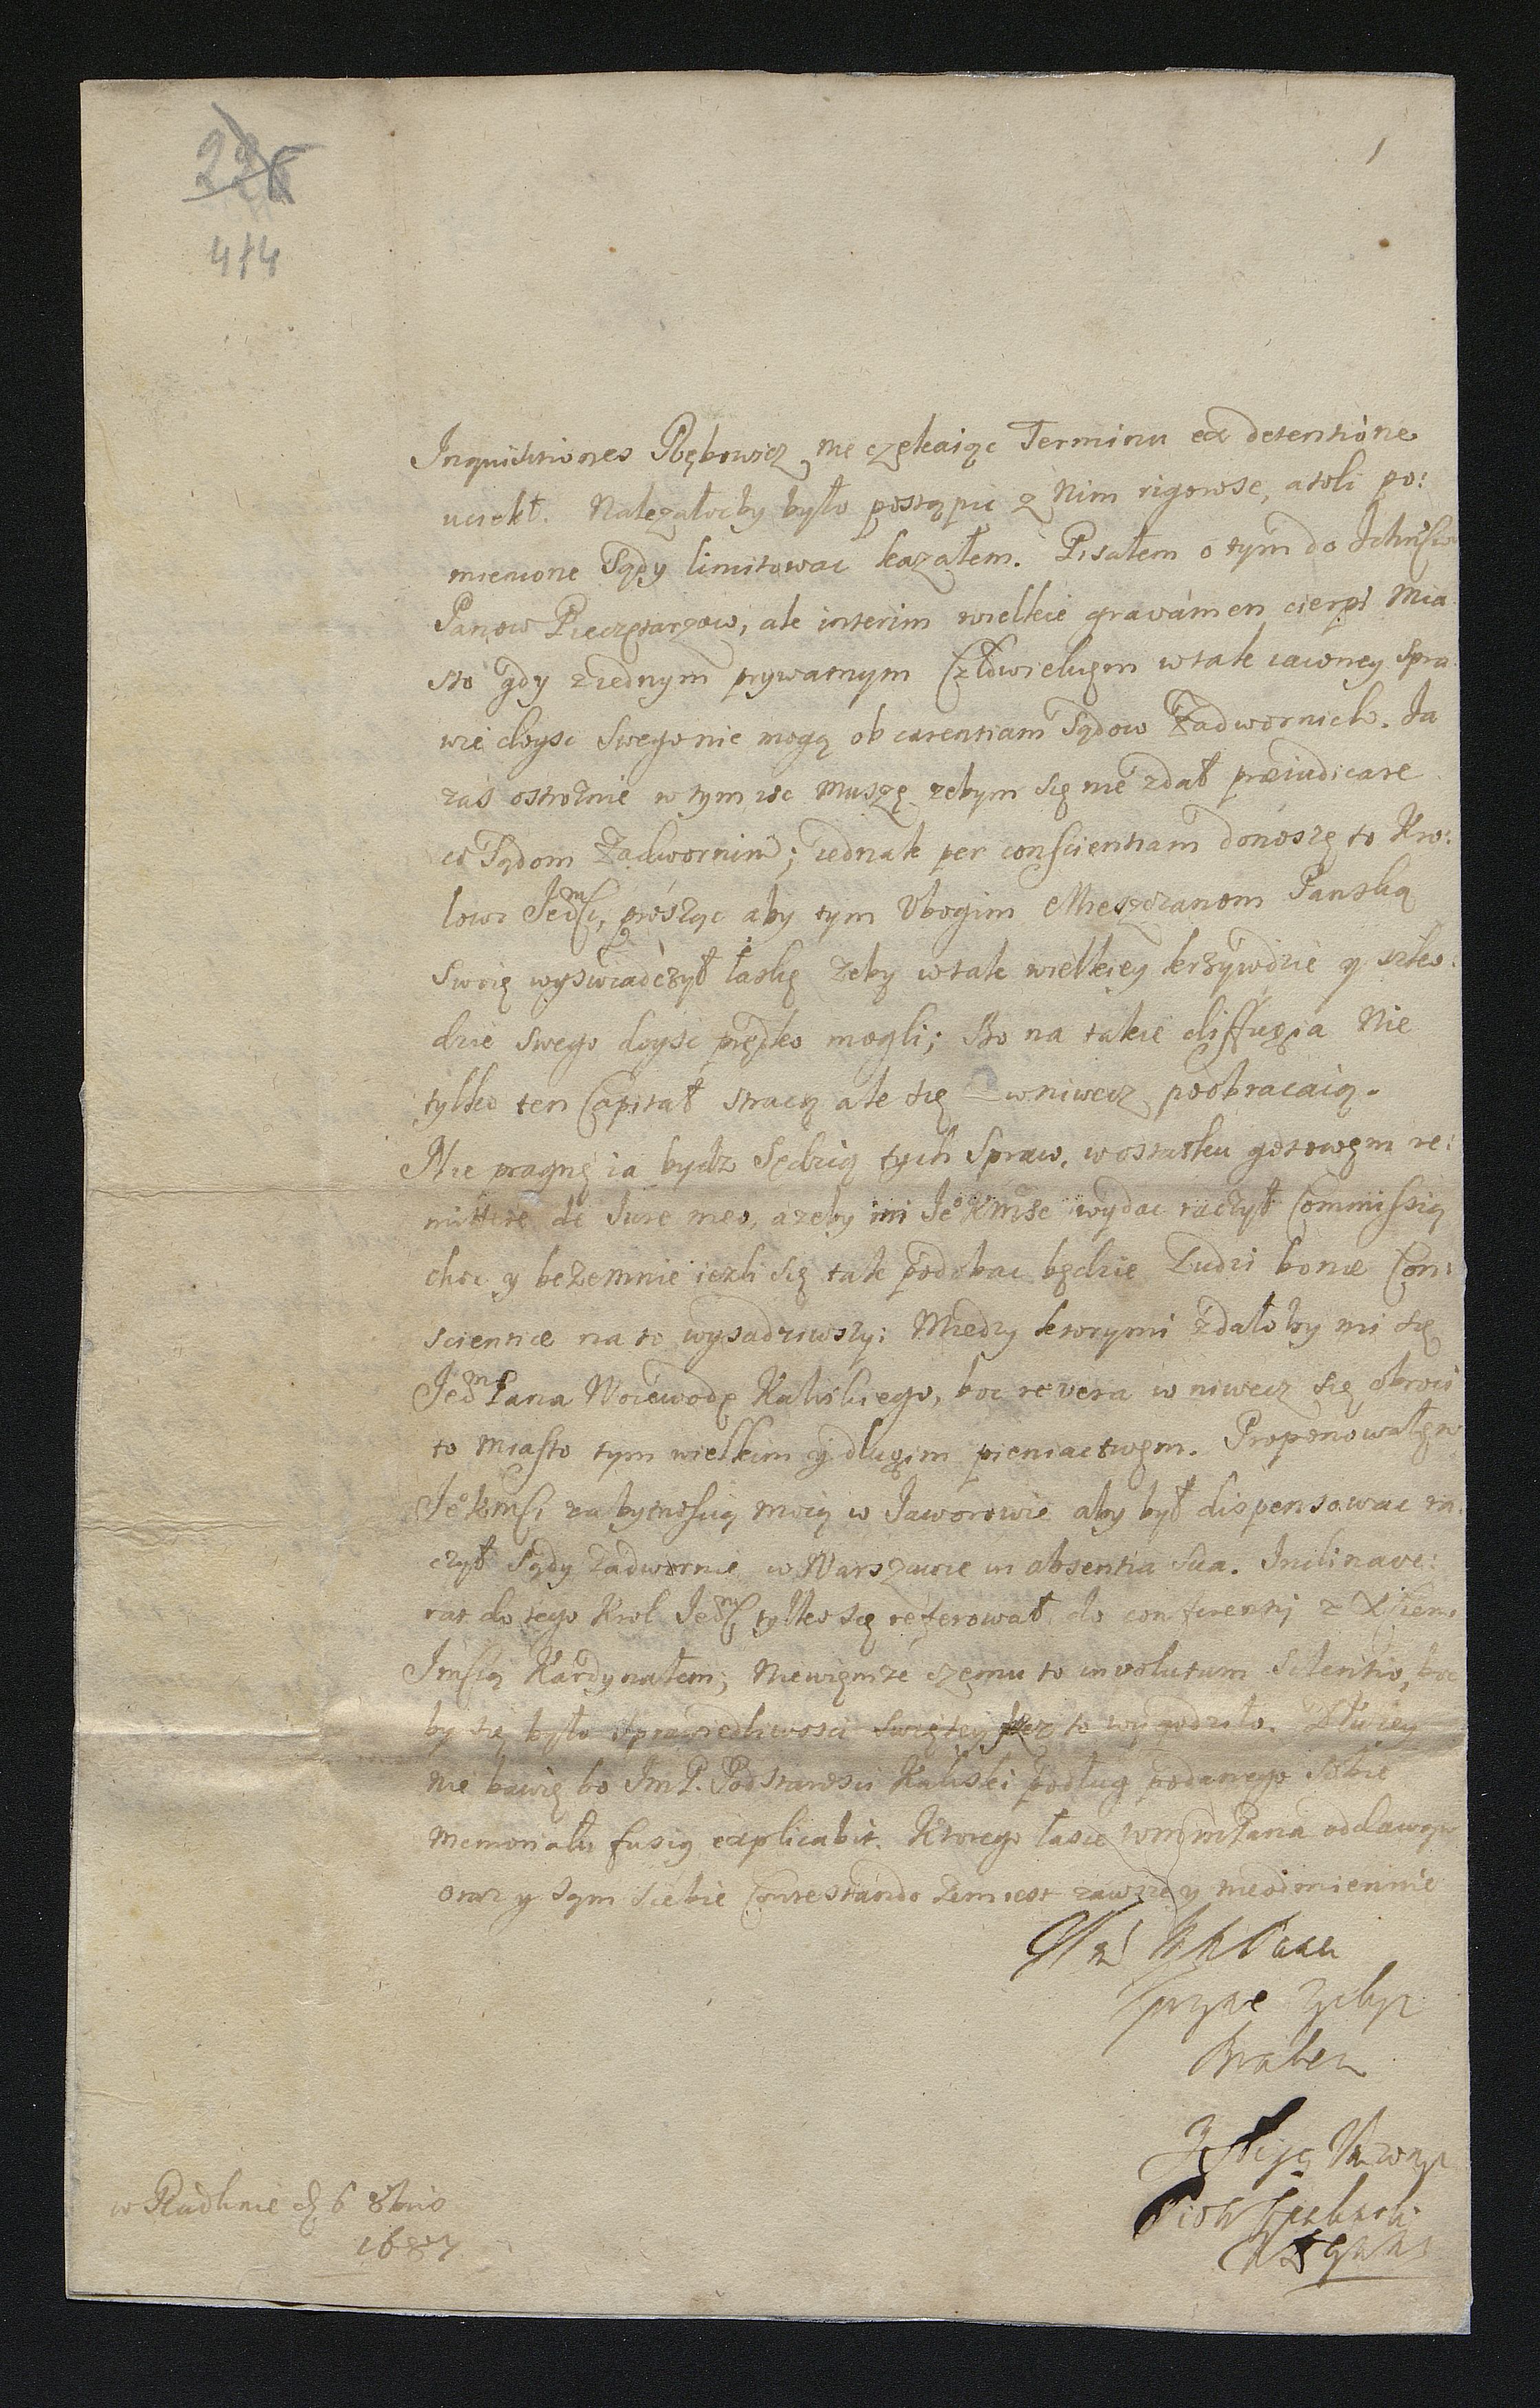 226
414
1
Inquisitiones Rębowicz nie czekaiąc Terminu ex detentione
uciekł. Należałoćby było postąpic z Nim rigorose, atoli po:
mienione Sądy limitowac kazałem. Pisałem o tym do Ichmści
Panow Pieczętarzow, ale interim wielkie gravamen cierpi Mia
sto gdy ziednym prywatnym Człowiekiem wtak iawney Spra
wie doysc swego nie mogą ob carentiam Sądow Zadwornich. Ja
zas ostroznie w tym isc muszę zebym się nie zdał præiudicare
Sądom Zadwornim; iednak per conscientiam donoszę to Kro:
lowi Jeomści, prosząc aby tym Vbogim Mieszczanom Panską
swoię wyswiadczył łaskę zeby wtak wielkiey krzywdzie y szko:
dzie swego doysc prędko mogli; Bo na takie diffugia Nie
tylko ten Capitał stracą ale się wniwecz poobracaią.
Nie pragnę ia bydz Sędzią tych Spraw, w ostatku gotowem re:
mittere de Jure meo, azeby mi Jeo Kmsc wydac raczył Commissią
choc y bezemnie iezli się tak podobac będzie Ludzi bonæ Con:
scientiæ na to wysadziwszy: Miedzy ktorymi zdałoby mi się
Jeom Pana Woiewodę Kaliskiego, boc revera w niwecz się obroci
to Miasto tym wielkim y długim pieniactwem. Proponowałem
Jeo kmsci za bytnoscią moią w Jaworowie aby był dispensowac ra:
czył Sądy Zadworne w Warszawie in absentia sua. Inclinave:
rat do tego Krol Jeomsc, tylko się referował do conferentij z Xsciem
Jmscią Kardynałem; Niewiemze czemu to involutum silentio, boc
by się było sprawiedliwosci swiętey przez to wygodziło. Dłuzey
nie bawię bo Jm P. Podstarosci Kaliski podług podanego sobie
memoriału fusius explicabit. Ktorego łasce WMMPana oddawszy
oraz y sym siebie contestando zem iest zawsze y nieodmiennie
WMMPana
Bratem
w Radlinie d. 6 8bris
1687